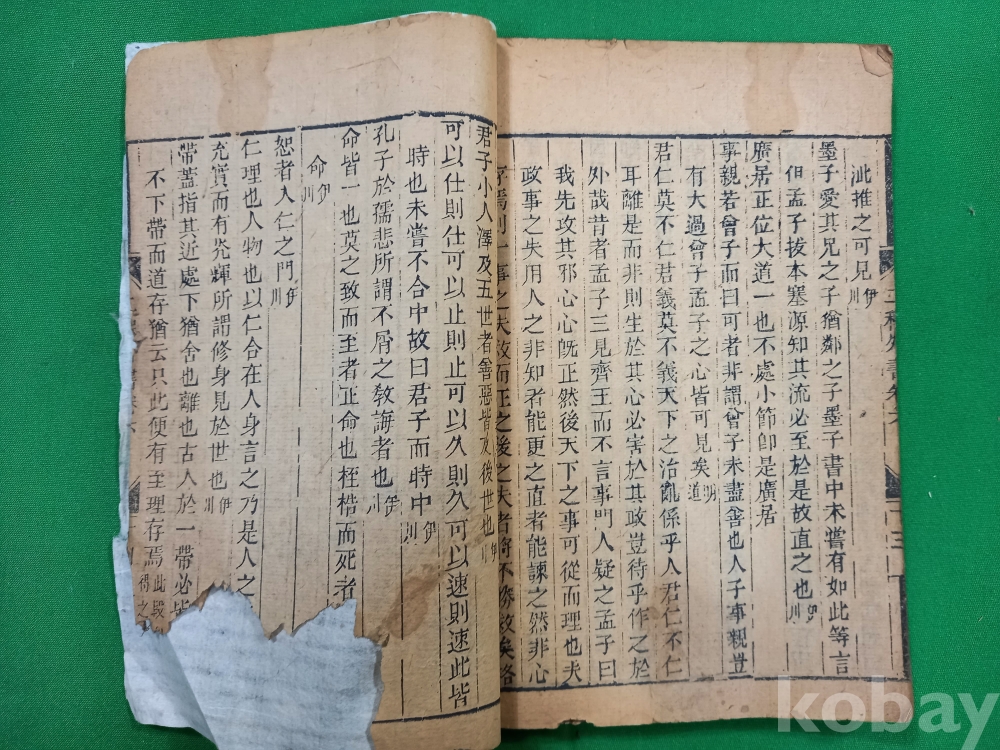 泚推之可見伊川
墨子愛其兄之子猶鄰之子墨子書中未嘗有如此等言
但孟子拔本塞源知其流必至於是故直之也伊川
廣居正位大道一也不處小節卽是廣居
事親若曾子而曰可者非謂曾子未盡善也人子事親豈
有大過曾子孟子之心皆可見矣明道
君仁莫不仁君義莫不義天下之治亂係乎人君仁不仁
耳離是而非則生於其心必害於其政豈待乎作之於
外哉昔者孟子三見齊王而不言事門人疑之孟子曰
我先攻其邪心心旣正然後天下之事可從而理也夫
政事之失用人之非知者能更之直者能諫之然非心
存焉則一事之失救而正之後之失者將不勝救矣格
君子小人澤及五世者善惡皆及後世也伊川
可以仕則仕可以止則止可以久則久可以速則速此皆
時也未嘗不合中故曰君子而時中伊川
孔子於孺悲所謂不屑之敎誨者也伊川
命皆一也莫之致而至者正命也桎梏而死者
命伊川
恕者入仁之門伊川
仁理也人物也以仁合在人身言之乃是人之
充實而有光輝所謂修身見於世也伊川
帶蓋指其近處下猶舍也離也古人於一帶必皆
不下帶而道存猶云只此便有至理存焉此
得之
kobay